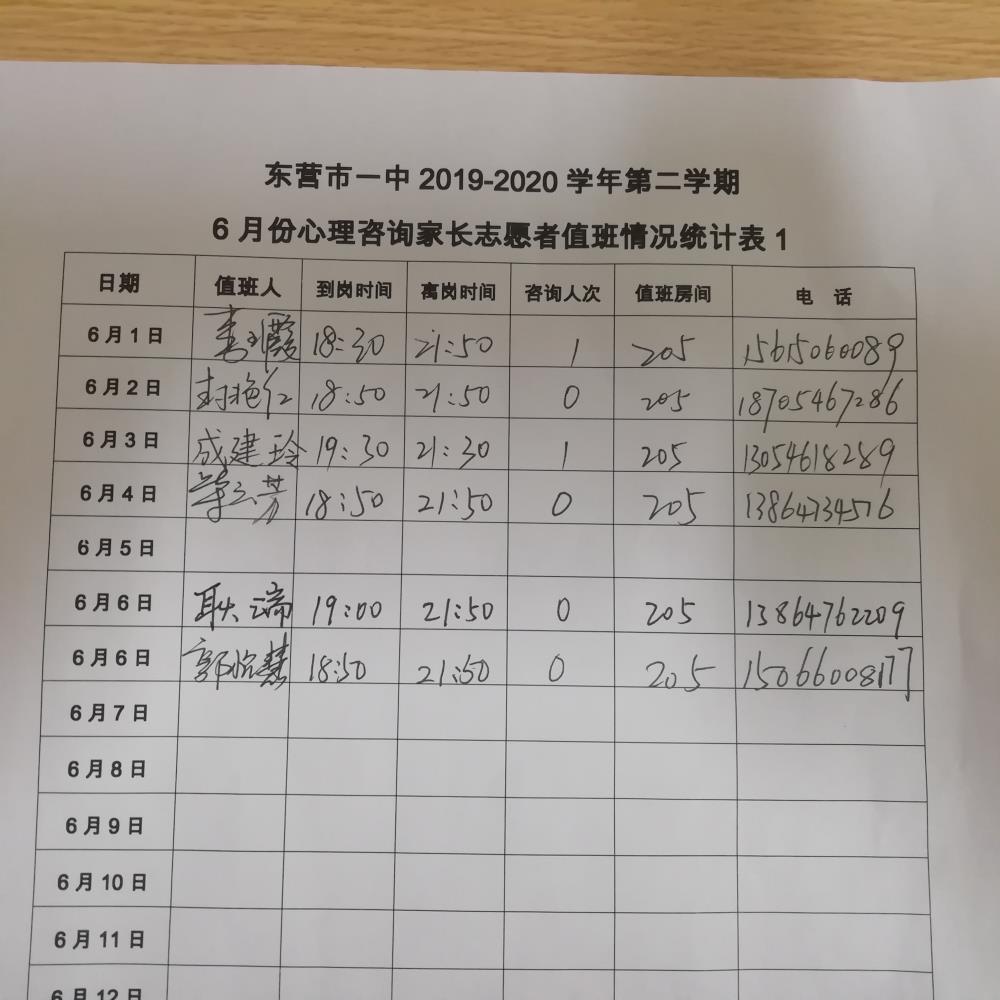 东营市一中 2019-2020 学年第二学期
6 月份心理咨询家长志愿者值班情况统计表 1
日期 值班人 到岗时间 离岗时间 咨询人次 值班房间 电 话
6 月 1 日 18:30 21:50 1 205 15615060089
6 月 2 日 18:50 21:50 0 205 18705467286
6 月 3 日 成建玲 19:30 21:30 1 205 13054618289
6 月 4 日 18:50 21:50 0 205 13864734576
6 月 5 日
6 月 6 日 耿瑞 19:00 21:50 0 205 13864762209
6 月 6 日 18:50 21:50 0 205 15066008177
6 月 7 日
6 月 8 日
6 月 9 日
6 月 10 日
6 月 11 日
6 月 12 日